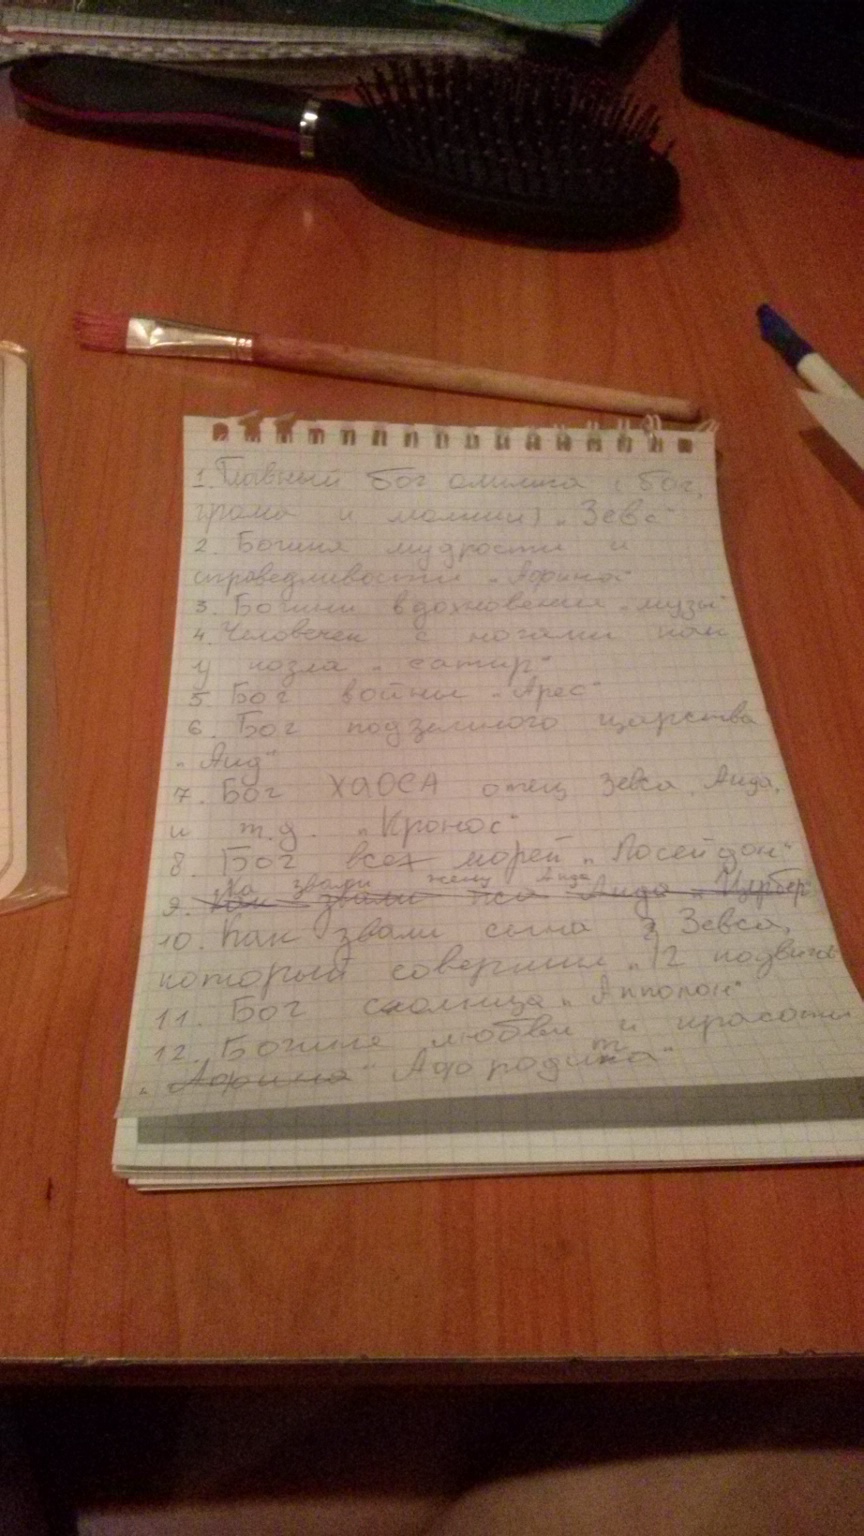 1. Главный Бог олимпа (Бог,
грома и молнии) „Зевс“
2. Богиня мудрости и
справедливости „Афина“
3. Богини вдохновения „музы“
4. Человечек с ногами как
у козла „сатир“
5 Бог войны „Арес“
6. Бог подземного царства
„Аид“
7. Бог ХАОСА отец Зевса, Аида,
и т.д. „Кронос“
8. Бог всех морей „Посейдон“
звали жену Аида
9. Как звали пса Аида „Цербер“
10. Как звали сына Зевса,
который совершил „12 подвигов
11. Бог солнца „Апполон“
12. Богиня любви и красоты
„Афина“ Афородита“